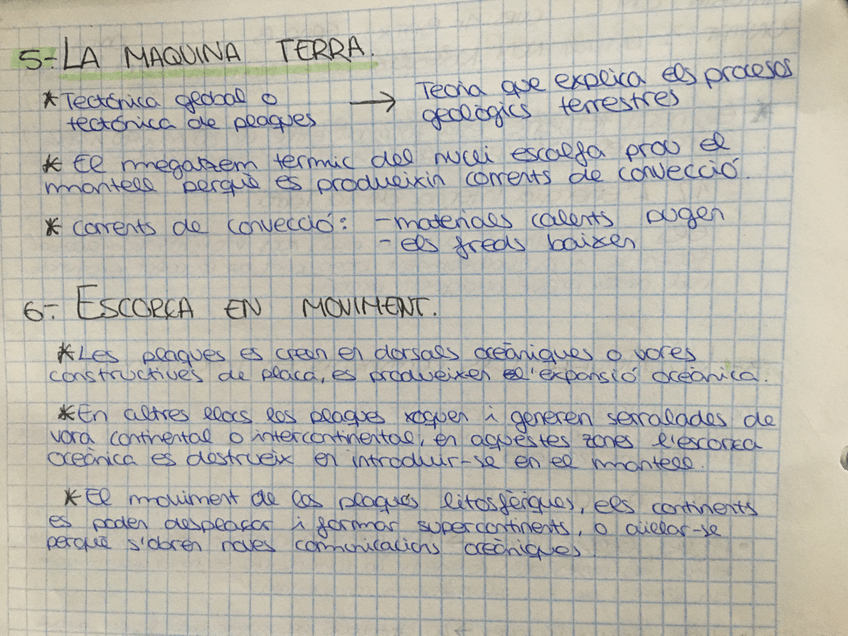 5- LA MAQUINA TERRA.
* Tectónica global o → Teoria que explica els procesos
tectónica de plaques geològics terrestres
* El megatzem termic del nucli escalfa prou el
mantell perquè es produeixin corrents de convecció.
* corrents de convecció: - materials calents pugen
- els freds baixen
6- ESCORÇA EN MOVIMENT.
* Les plaques es creen en dorsals oceàniques o vores
constructives de placa, es produeixen l'expansió oceànica.
* En altres llocs les plaques xoquen i generen serralades de
vora continental o intercontinental, en aquestes zones l'escorca
oceànica es destrueix en introduir-se en el mantell.
* El moviment de las plaques litosfèriques, els continents
es poden desplaçar i formar supercontinents, o aillar-se
perquè s'obren noves comunicacions oceàniques